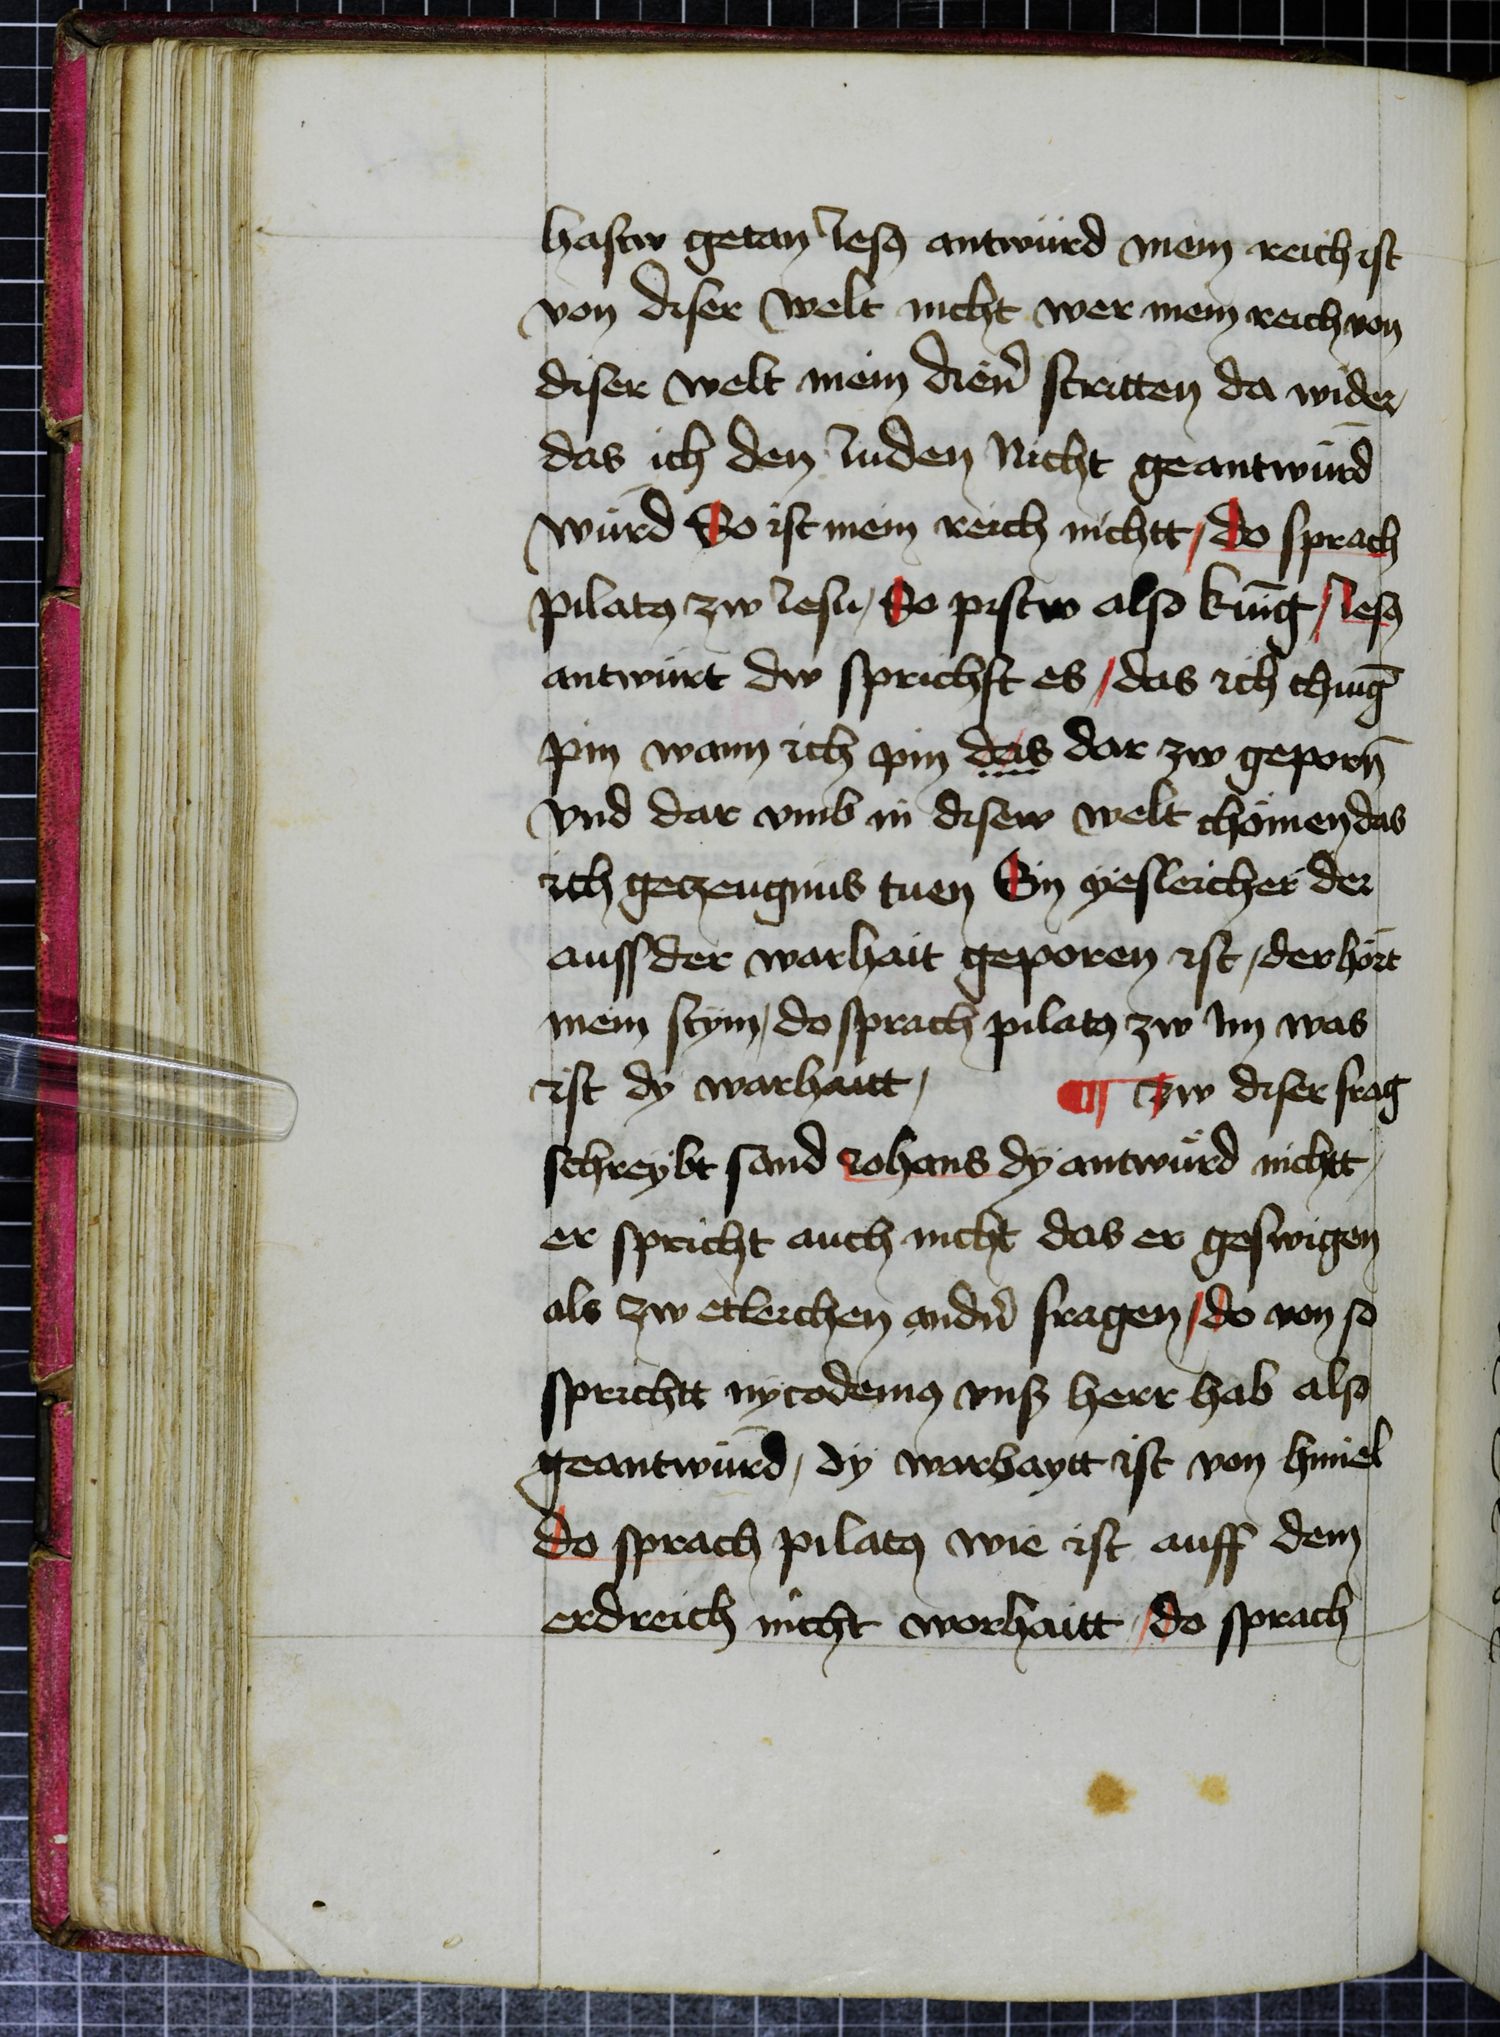 hastw getan Jesꝰ antwürd mein reich ist
von diser welt nicht wer mein reich von
diser welt mein dien̄ stritten da wider
das ich den Juden Nicht geantwürd
würd So ist mein reich nichtt / do sprach
pilatꝰ zw Jesu / So pistw also küng / Jesꝰ
antwürt dw sprichst es / das ich chunḡ
pin wann ich pin das dar zw geporn̄
vnd dar vmb in disew welt chömen das
ich geczeugnus tuen Ein yesleicher der
auss der warhait geporen ist / der hört
mein stym / do sprach pilatꝰ zw Im was
ist dy warhaitt /   ¶ zw diser frag
schreybt sand Johans dy antwürd nichtt /
er spricht auch nicht das er geswigen
als zw etleichen andn̄ fragen / do von so
sprichtt nycodemꝰ vnß herr hab also
geantwürd / dy warhaytt ist von himel
do sprach pilatꝰ wie ist auff dem
erdreich nicht worhaitt / do sprach